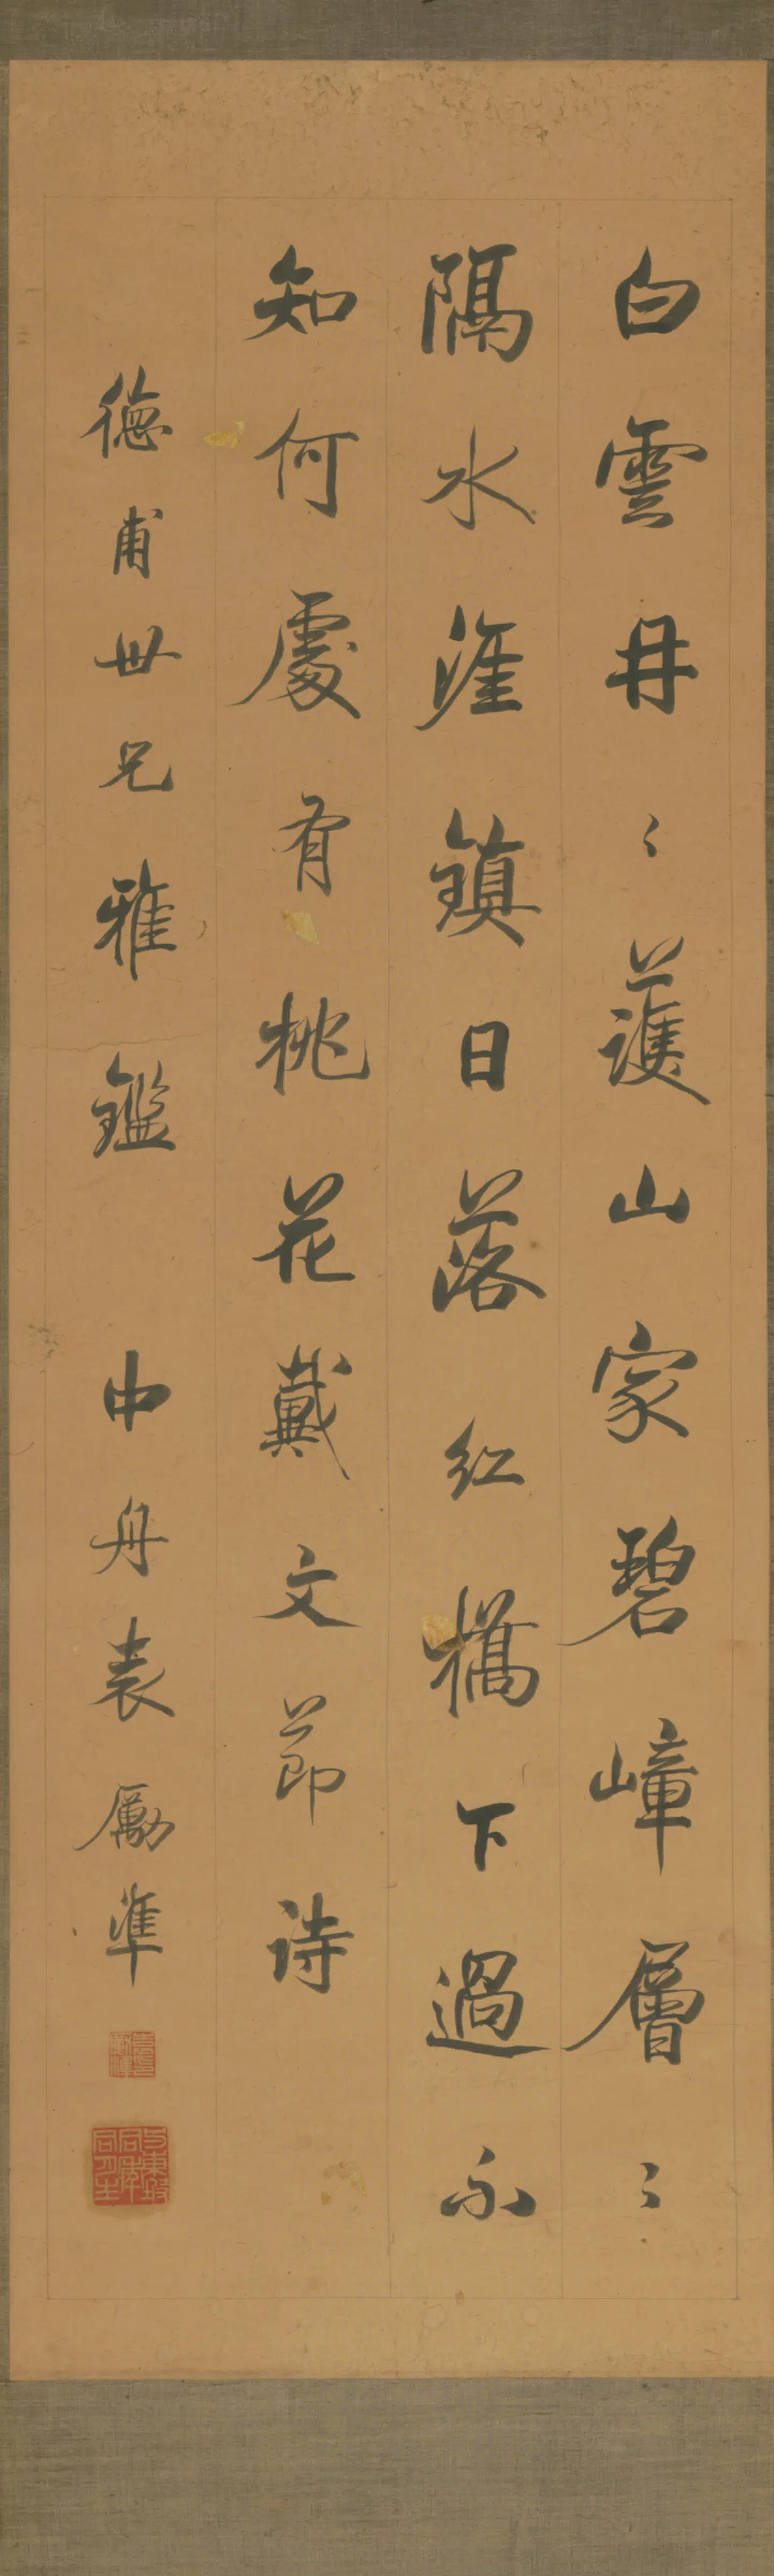 白雲冉〻護山家碧嶂層〻
隔水涯鎮日落紅橋下過不
知何處有桃花戴文節詩
德甫世兄雅鑑 中舟袁勵準